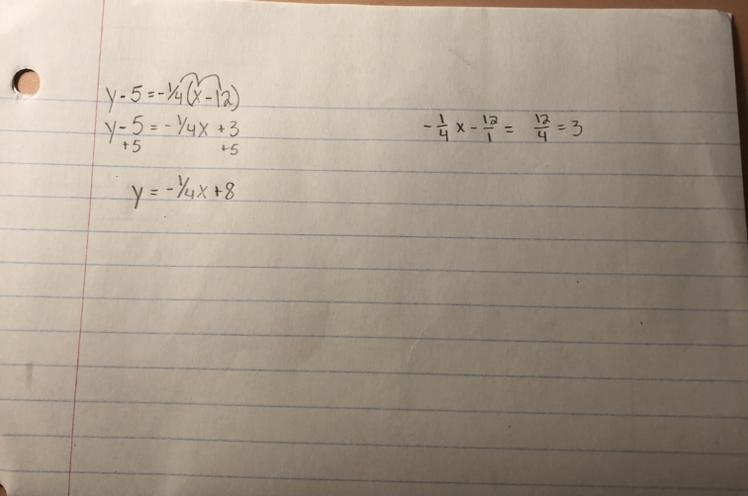 y - 5 = -1/4(x - 12)
y - 5 = -1/4x + 3
+5 +5
y = -1/4x + 8
-1/4 x - 12/1 = 12/4 = 3